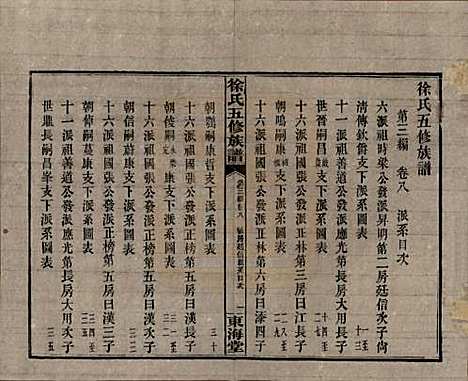 徐氏五修族譜
第三編 卷八 派系目次
六派祖時梁公發派昇明第二房廷信次子尙
清傳欽爵支下派系圖表
十一派祖善道公發派應光第長房大用次子
世晉嗣昌支下派系圖表
十六派祖國張公發派正林第三房曰江長子
朝鳴嗣康支下派系圖表
十六派祖國張公發派正林第六房曰漆四子
徐氏五修族譜
卷三編卷八
二
東海堂
朝鸚嗣康哲支下派系圖表
三十
十六派祖國張公發派正榜第五房曰漢長子
朝俊嗣康支下派系圖表
十六派祖國張公發派正榜第五房曰漢次子
朝信嗣蔚康支下派系圖表
十六派祖國張公發派正榜第五房曰漢三子
朝倬嗣蓂康支下派系圖表
十一派祖善道公發派應光第長房大用次子
世雕長嗣昌峯支下派系圖表